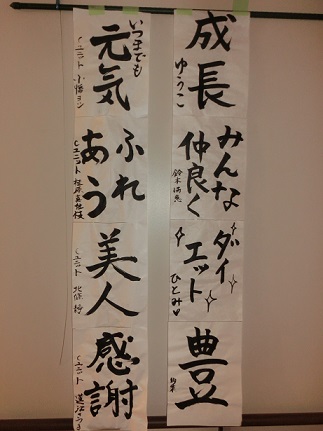 成長
ゆうこ
みんな
仲良く
ダイ
エット
ひとみ
豊
いつまでも
元気
Cユニット
ふれ
あう
Cユニット
美人
Cユニット
感謝
Cユニット